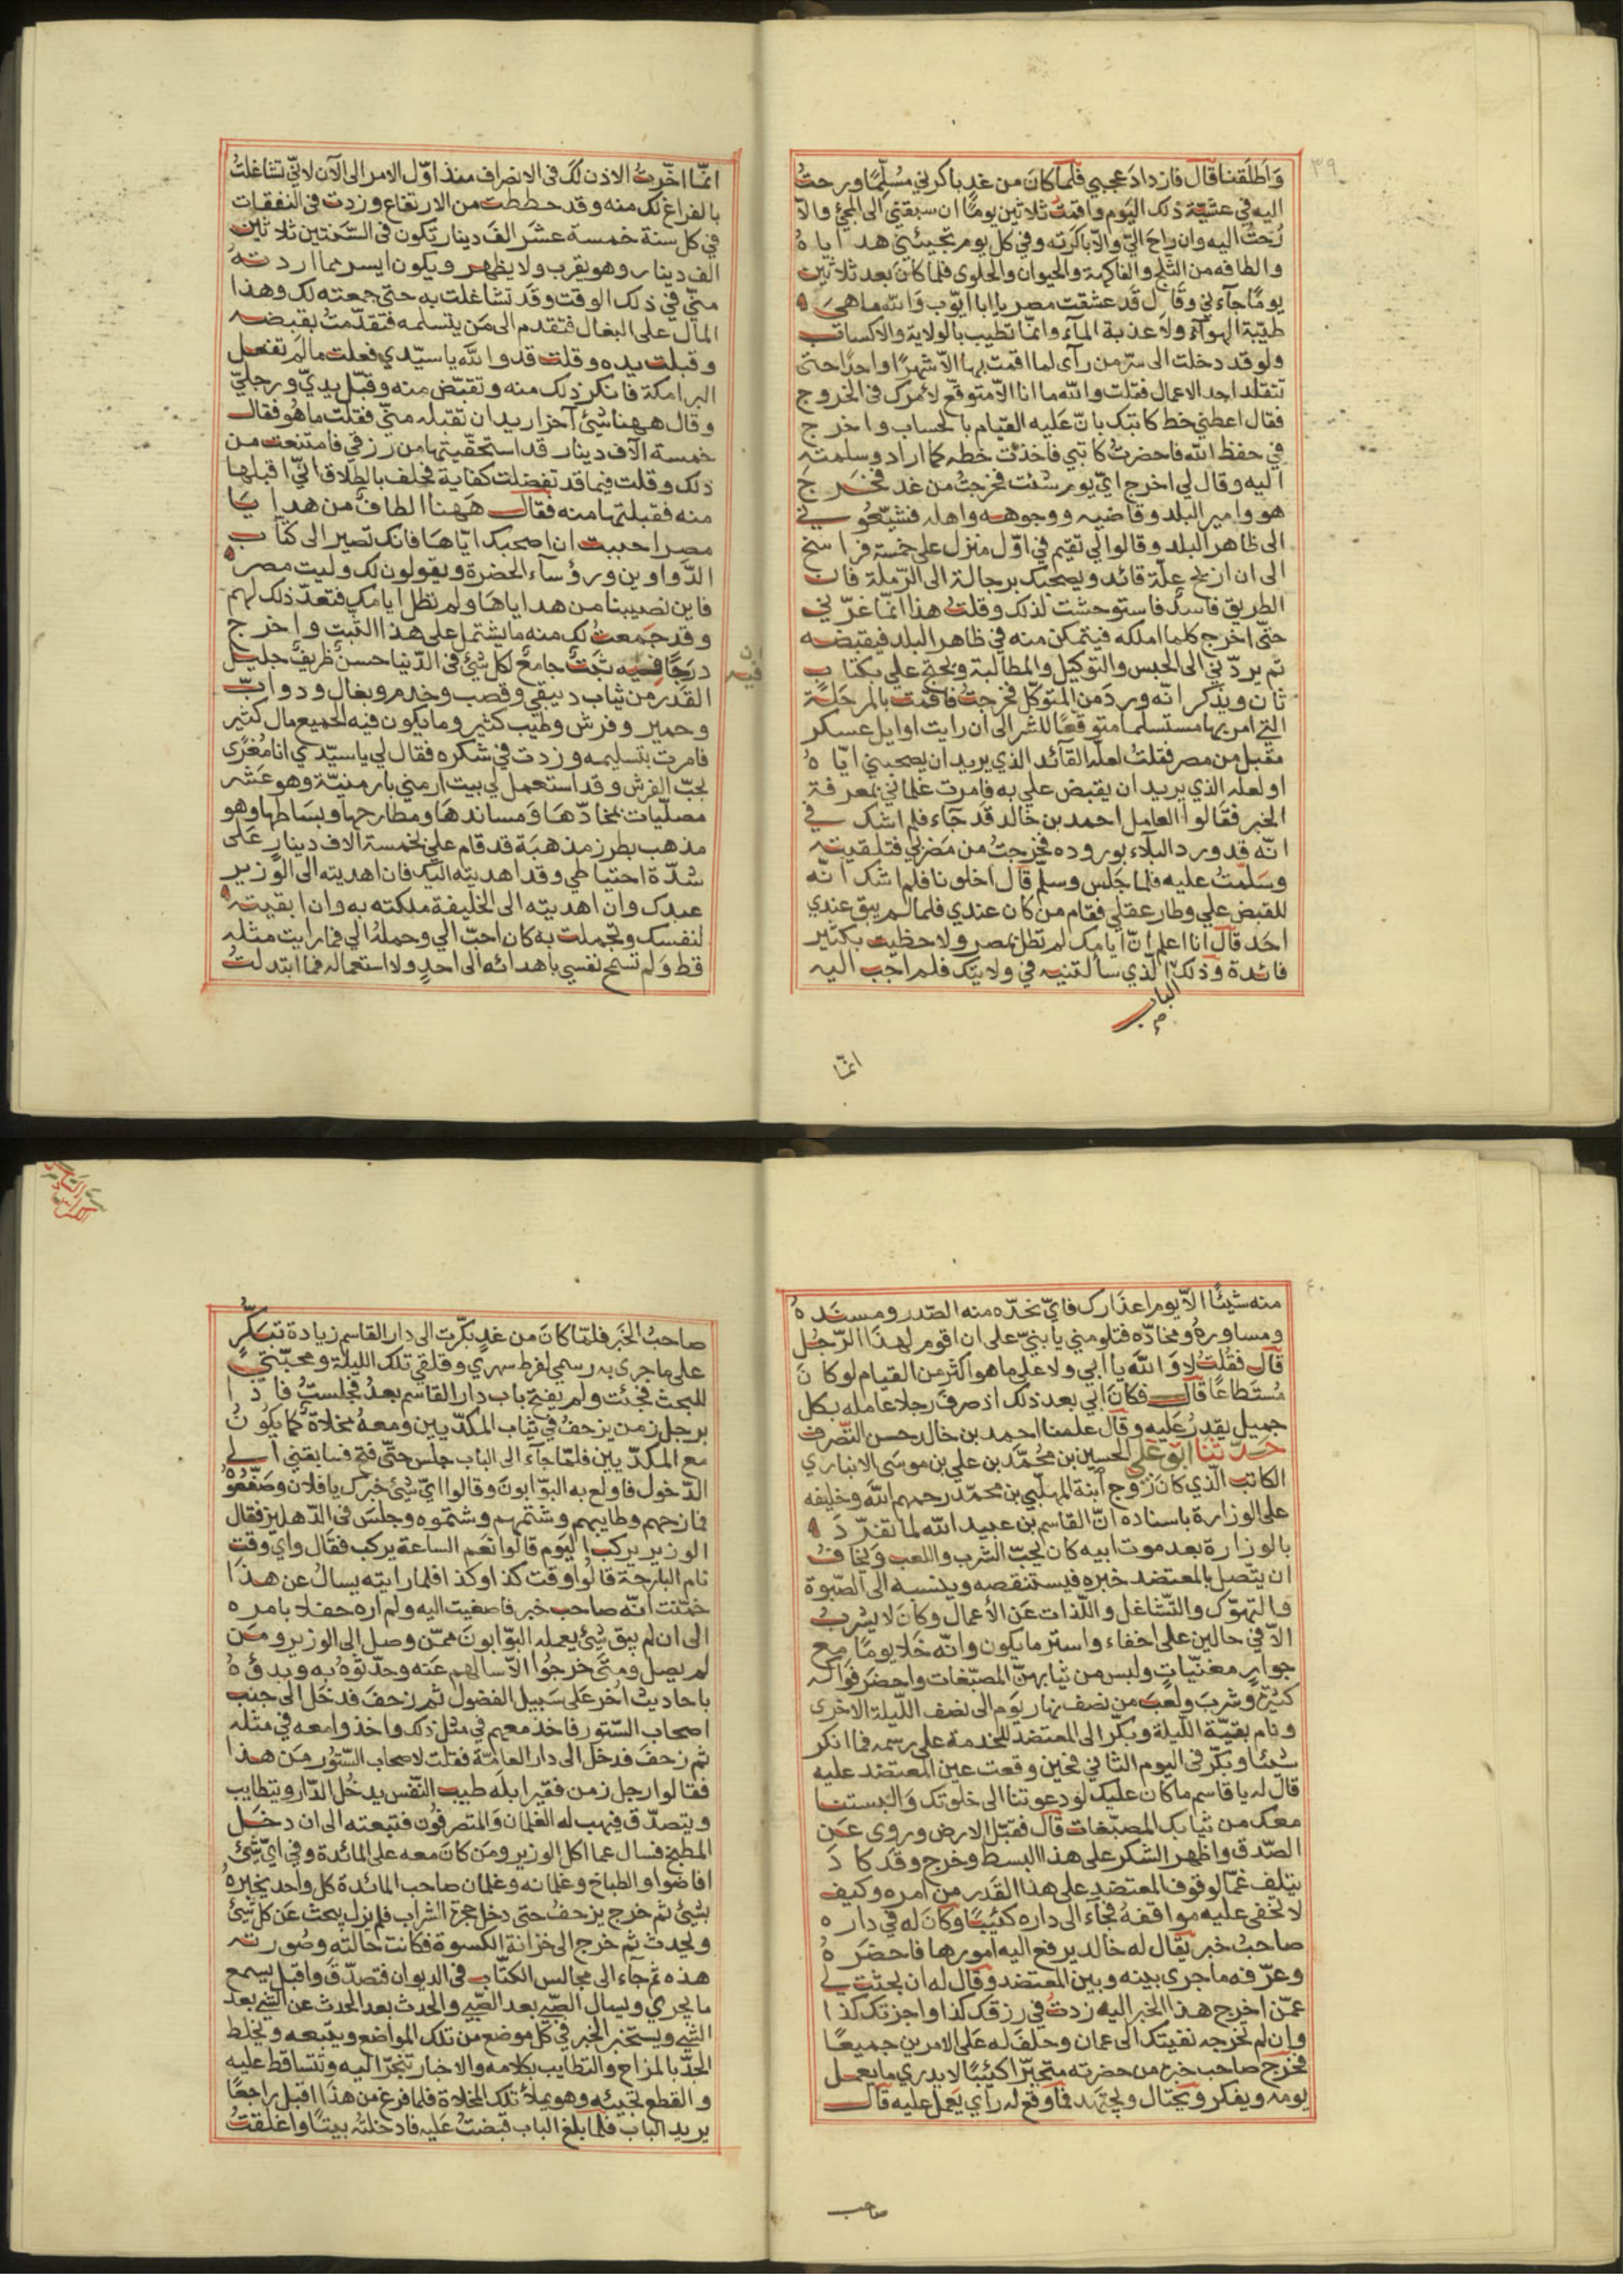 ٣٩
وَاَطلَقنا قال فازدادَ عجبي فلمّا كانَ من غدٍ باكرني مُسلّمًا ورحتُ
اليه في عشيّة ذلك اليوم واقمتُ ثلاثين يومًا ان سبقني الى المجئ والاّ
رُحتُ اليه وان راح اليّ والاّ باكرته وفي كل يوم تجيئني هدايا هُ
والطافه من الثلج والفاكهة والحيوان والحلوى فلما كانَ بعد ثلاثين
يومًا جآءني وقال قد عشقت مصر يا ابا ايّوب وَالله ما هي
طيّبة الهوآء ولا عذبة المآء وانّما تطيب بالولاية والاكتساب
ولو قد دخلت الى سرّ من رآى لما اقمت بها الاّ شهرًا واحدًا حتى
تتقلد احد الاعمال فقلت والله ما انا الاّ متوقّع لأمرك في الخروج
فقال اعطني خط كاتبك بانّ عَليه القيام بالحساب واخرج
في حفظ الله فاحضرتُ كاتبي فاخذتُ خطه كما اراد وسلمته
اليه وقال لي اخرج ايّ يوم شئت فخرجتُ من غد فخرج
هو وامير البلد وقاضيه ووجوهه واهله فشيّعوني
الى ظاهر البلد وقالوا لي تقيم في اوّل منزل على خمسة فراسخ
الى ان ازيح علّة قائد ويصحبك برجاله الى الرّملة فان
الطريق فاسدٌ فاستوحشت لذلك وقلتُ هذا انّما غرّني
حتّى اخرج كلما املكه فيتمكن منه في ظاهر البلد فيقبضه
ثم يردّني الى الحبس والتوكيل والمطالبة ويحتج علي بكتاب
ثان ويذكر انّه ورد من المتوكّل فخرجتُ فاقمت بالمرحلة
التي امر بها مستسلما متوقعًا للشر الى ان رايت اوايل عسكر
مقبل من مصر فقلتُ لعله القآئد الذي يريد ان يصحبني ايّاهُ
او لعله الذي يريد ان يقبض علي به فامرت غلماني بمعرفة
الخبر فقالوا العامل احمد بن خالد قد جآء فلم اشك في
انّه قد ورد البلآء بوروده فخرجتُ من مَضربي فتلقيته
وسَلّمتُ عليه فلما جَلس وسلّم قال اخلونا فلم اشك انّه
للقبض علي وطار عقلي فقام من كان عندي فلما لم يبق عندي
احَد قال انا اعلم انّ ايامك لم تطل بمصر ولا حظيت بكثير
فائدة وذلك الّذي سألتنيه في ولايتك فلم اجب اليه
الباب
انمّا
انمّا اخّرتُ الاذن لَكَ في الانصراف منذ اوّل الامر الى الآن لانّي تشاغلتُ
بالفراغ لك منه وقد حططت من الارتفاع وزدت في النفقات
في كل سنة خمسة عشر الفَ دينار تكون في السّنتين ثلاثين
الف دينار وهو يقرب ولا يظهر ويكون ايسر مما اردته
منّي في ذلك الوقت وقد تشاغلت به حتى جمعته لك وهذا
المال على البغال فتقدم الى مَن يتسلمه فتقدّمتُ بقبضه
وقبلت يده وقلت قد والله يا سيّدي فعلت ما لم تفعل
البرامكة فانكر ذلك منه وتقبّض منه وقبّل يديّ ورجليّ
وقال ههنا شئ آخر اريد ان تقبله منّي فقلت ما هُو فقال
خمسة آلاف دينار قد استحقّيتها من رزقي فامتنعت من
ذلك وقلت فيما قد تفضلت كفاية فحلف بالطلاق انّي اقبلها
منه فقبلتها منه فقال هَهنا الطافٌ من هدايا
مصر احببت ان اصحبك ايّاهَا فانك تصير الى كتاب
الدّواوين ورؤسآء الحضرة ويقولون لك وليت مصر
فاين نصيبنا من هداياهَا ولم تطل ايامك فتعدّ ذلك لهم
وقد جَمعتُ لك منه ما يشتمل على هذا الثبت واخرج
درجًا فيه ثبتٌ جامعٌ لكل شئ في الدّنيا حسنٌ ظريفٌ جليل
ان
فيه
القدر من ثياب دبيقي وقصب وخدم وبغال ودوابّ
وحمير وفرش وطيب كثير وما يكون فيه الجميع مال كثير
فامرت بتسليمه وزدت في شكره فقال لي يا سيّدي انا مُغرًى
بحبّ الفرش وقد استعمل لي بيت ارمني بارمنيّة وهو عَشر
مصلّيات بمخادّهَا وَمساندهَا ومطارحها وبسَاطها وهو
مذهب بطرز مذهبَة قد قام عليَّ بخمسة الاف دينار عَلى
شدّة احتياطي وقد اهديته اليك فان اهديته الى الوزير
عبدك وان اهديته الى الخليفة ملكته به وان ابقيته
لنفسك وتجملت به كان احبّ الي وحملهُ الي فما رايت مثله
قط وَلم تسمح نفسي باهدائه الى احدٍ ولا استعماله فما ابتدلتُ
٤٠
منه شيئًا الاّ يوم اعذارك فايّ تخدّه منه الصّدر ومسندهُ
ومساورهُ ومخادّه فتلومني يا بنيّ على ان اقوم لهذا الرّجل
قال فقلتُ لا وَالله يا ابي ولا على ما هو اكثر من القيام لو كانَ
مُستَطاعًا قال فكانَ ابي بعد ذلك اذ صرفَ رجلا عامله بكل
جميل يقدر عَليه وقال علمنا احمد بن خالد حسن التّصرف
حَدّثنا ابو عَلي الحسين بن مُحمّد بن علي بن موسَى الانباري
الكاتب الّذي كانَ زوج آبنة المهلّبي بن محمّد رحمهم الله وخليفه
على الوزارة باسناده انّ القاسم بن عبيد الله لما تفرّدَ
بالوزارة بعد موت ابيه كان يحبّ الشرب واللعب وَيخافُ
ان يتّصل بالمعتضد خبره فيستنقصه وينسبه الى الصّبوة
والتهوّك والتّشاغل واللّذات عَن الأعمال وكانَ لا يشربُ
الاّ في حالين على اخفاء واستر ما يكون وانّه خَلا يومًا مع
جوارٍ مغنّياتٍ ولبس من ثيابهنّ المصبّغات واحضر فَواكه
كثيرَة وشربَ ولَعبَ من نصف نهار يَوم الى نصف اللّيلة الاخرى
ونام بقيّة اللّيلة وبكّر الى المعتضد للخدمة على رسمه فما انكر
شيئًا وبكّر في اليوم الثاني فحين وقعت عين المعتضد عليه
قال له يا قاسم ما كان عليك لو دعوتنا الى خلوتك وَالبستنا
معك من ثيابك المصبّغات قال فقبّل الارض وروى عَن
الصّدق واظهر الشكر على هذا البسط وخرج وقَد كادَ
يتلف غمًا لوقوف المعتضد على هذا القدر من امره وكيف
لا تخفى عليه موافقهُ فجآء الى داره كئيبًا وكانَ له في داره
صاحبُ خبر يقال له خالد يرفع اليه امورها فاحضرهُ
وعرّفه ما جرى بينه وبين المعتضد وقال له ان بحثت لي
عمّن اخرج هذا الخبر اليه زدتُ في رزقك كذا واجزتك كذا
وان لم تخرجه نفيتك الى عمان وحلف له عَلى الامرين جميعًا
فخرج صاحب خبره من حضرته متحيّرًا كئيبًا لا يدري ما يعمل
يومه ويفكر ويحتال ويجتهد فما وقع له رآي يَعمل عليه قال
صاحب
صاحبُ الخَبر فلمّا كانَ من غدٍ بكّرت الى دار القاسم زيادة تبكّرٍ
على ما جرى به رسمي لفرط سهري وقلقي تلك الليلة ومحبّتي
للبحث فجئت ولم يفتح باب دار القاسم بعدُ فجلستُ فاذا
برجل زمن يزحفُ في ثياب المكدّيين ومعهُ مخلاة كما يكونُ
مع المكدّيين فلمّا جآء الى الباب جلس حتّى فتح فسابقني الى
الدّخول فاولع به البوّابونَ وقالوا ايّ شئ خبرك يا فلان وصَفّعُوهُ
فمازحهم وطايبهم وشتمهم وشتموه وجلسَ في الدّهليز فقال
الوزير يركب اليَوم قالوا نعَم الساعة يركب فقال واي وقت
نام البارحة قالُوا وقت كذا وكذا فلما رايته يسالُ عن هذا
خمّنت انّه صاحب خبر فاصغيت اليه ولم اره حفلا بامره
الى ان لم يبق شئ يعمله البوّابونَ عمّن وصل الى الوزير ومَن
لم يصل ومتَى خرجوا الاّ سالهم عَنه وحدّثوهُ به وبدؤهُ
باحاديث اُخر عَلى سَبيل الفضول ثم زحفَ فدخَل الى جنب
اصحاب السّتور فاخذ معهم في مثل ذلك واخذوا معه في مثله
ثم زحفَ فدخل الى دار العامّة فقلت لاصحاب السّتُور مَن هذا
فقالوا رجل زمن فقير ابله طيب النّفس يدخُل الدّار ويتطايب
ويتصدّق فيهب له الغلمان وَالمتصرفُون فتبعته الى ان دخَل
المطبخ فسال عما اكل الوزير ومَن كانَ معه على المائدة وفي ايّ شئ
افاضوا والطباخ وغلمانه وغلمان صاحب المائدة كل واحد يخبرهُ
بشئ ثم خرج يزحفُ حتى دخل حجرة الشراب فلم يزل يبحث عَن كل شئ
ويحدث ثم خرج الى خزانة الكسوة فكانت حالته وصُورته
هذه ثم جآء الى مجالس الكتّاب في الديوان فتصدّقَ واقبل يسمع
ما يجري ويسال الصّبي بعد الصّبي والحدث بعد الحدث عن الشئ بعد
الشئ ويستخبر الخبر في كلّ موضع من تلك المواضع ويتبعه ويخلط
الجدّ بالمزاح والتطايب بكلامه والاخبار تنجرّ اليه وتتساقط عليه
والقطع تجيئه وهو يملأ تلك المخلاة فلما فرغ من هذا اقبل راجعًا
يريد الباب فلمّا بلغ الباب قبضتُ عَليه فادخلتُه بيتًا واغلقتُ